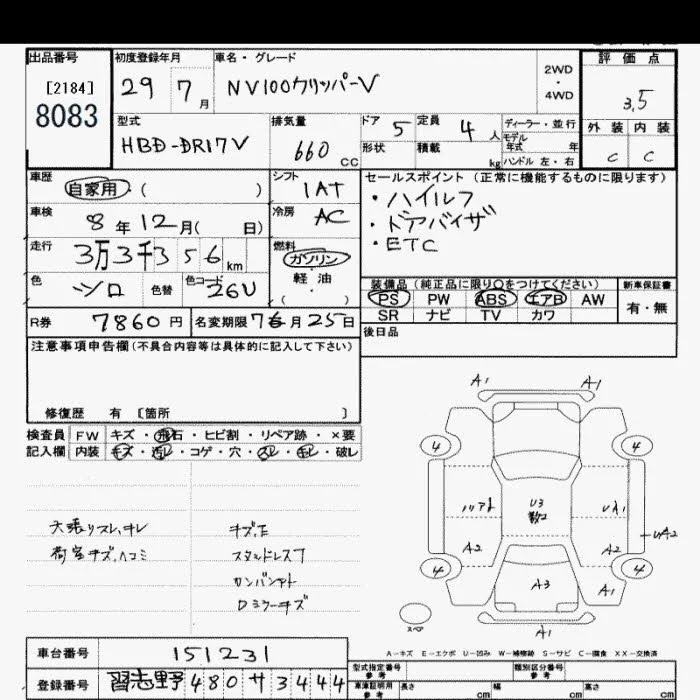 出品番号
[2184]
8083
初度登録年月
29 7 月
車名・グレード
NV100クリッパーV
2WD
・
4WD
評価点
3.5
外装 内装
C C
型式
HBD-DR17V
排気量
660 cc
ドア 5
定員 4 人
形状
積載 kg
ディーラー・並行
モデル年式 年
ハンドル 左・右
車歴
自家用・( )
車検
8年12月( 日)
走行
3万3千356km
色
シロ
色替
色コード
26U
シフト
IAT
冷房
AC
燃料
ガソリン
軽油
( )
セールスポイント(正常に機能するものに限ります)
・ハイルーフ
・ドアバイザ
・ETC
装備品(純正品に限り○をつけてください)
PS PW ABS エアB AW
SR ナビ TV カワ
新車保証書
有・無
R券 7860円
名変期限
月25日
後日品
注意事項申告欄(不具合内容等は具体的に記入して下さい)
修復歴 有 [箇所 ]
検査員記入欄
FW キズ・飛石・ヒビ割・リペア跡・×要
内装 キズ・汚レ・コゲ・穴・スレ・モレ・破レ
天張りスレ、キレ
荷室キズ、ヘコミ
キズ、E
スタッドレス7
ロミラーキズ
A1 A1
4 4
U3
UA1
UA2
A2 A2
A3
A1
4 4
A1
スペア
A-キズ E-エクボ U-凹み W-補修跡 S-サビ C-腐食 XX-交換済
車台番号 151231
登録番号 習志野480サ3444
型式指定番号
参考
類別区分番号
参考
車庫証明用
参考
長さ cm
幅 cm
高さ cm